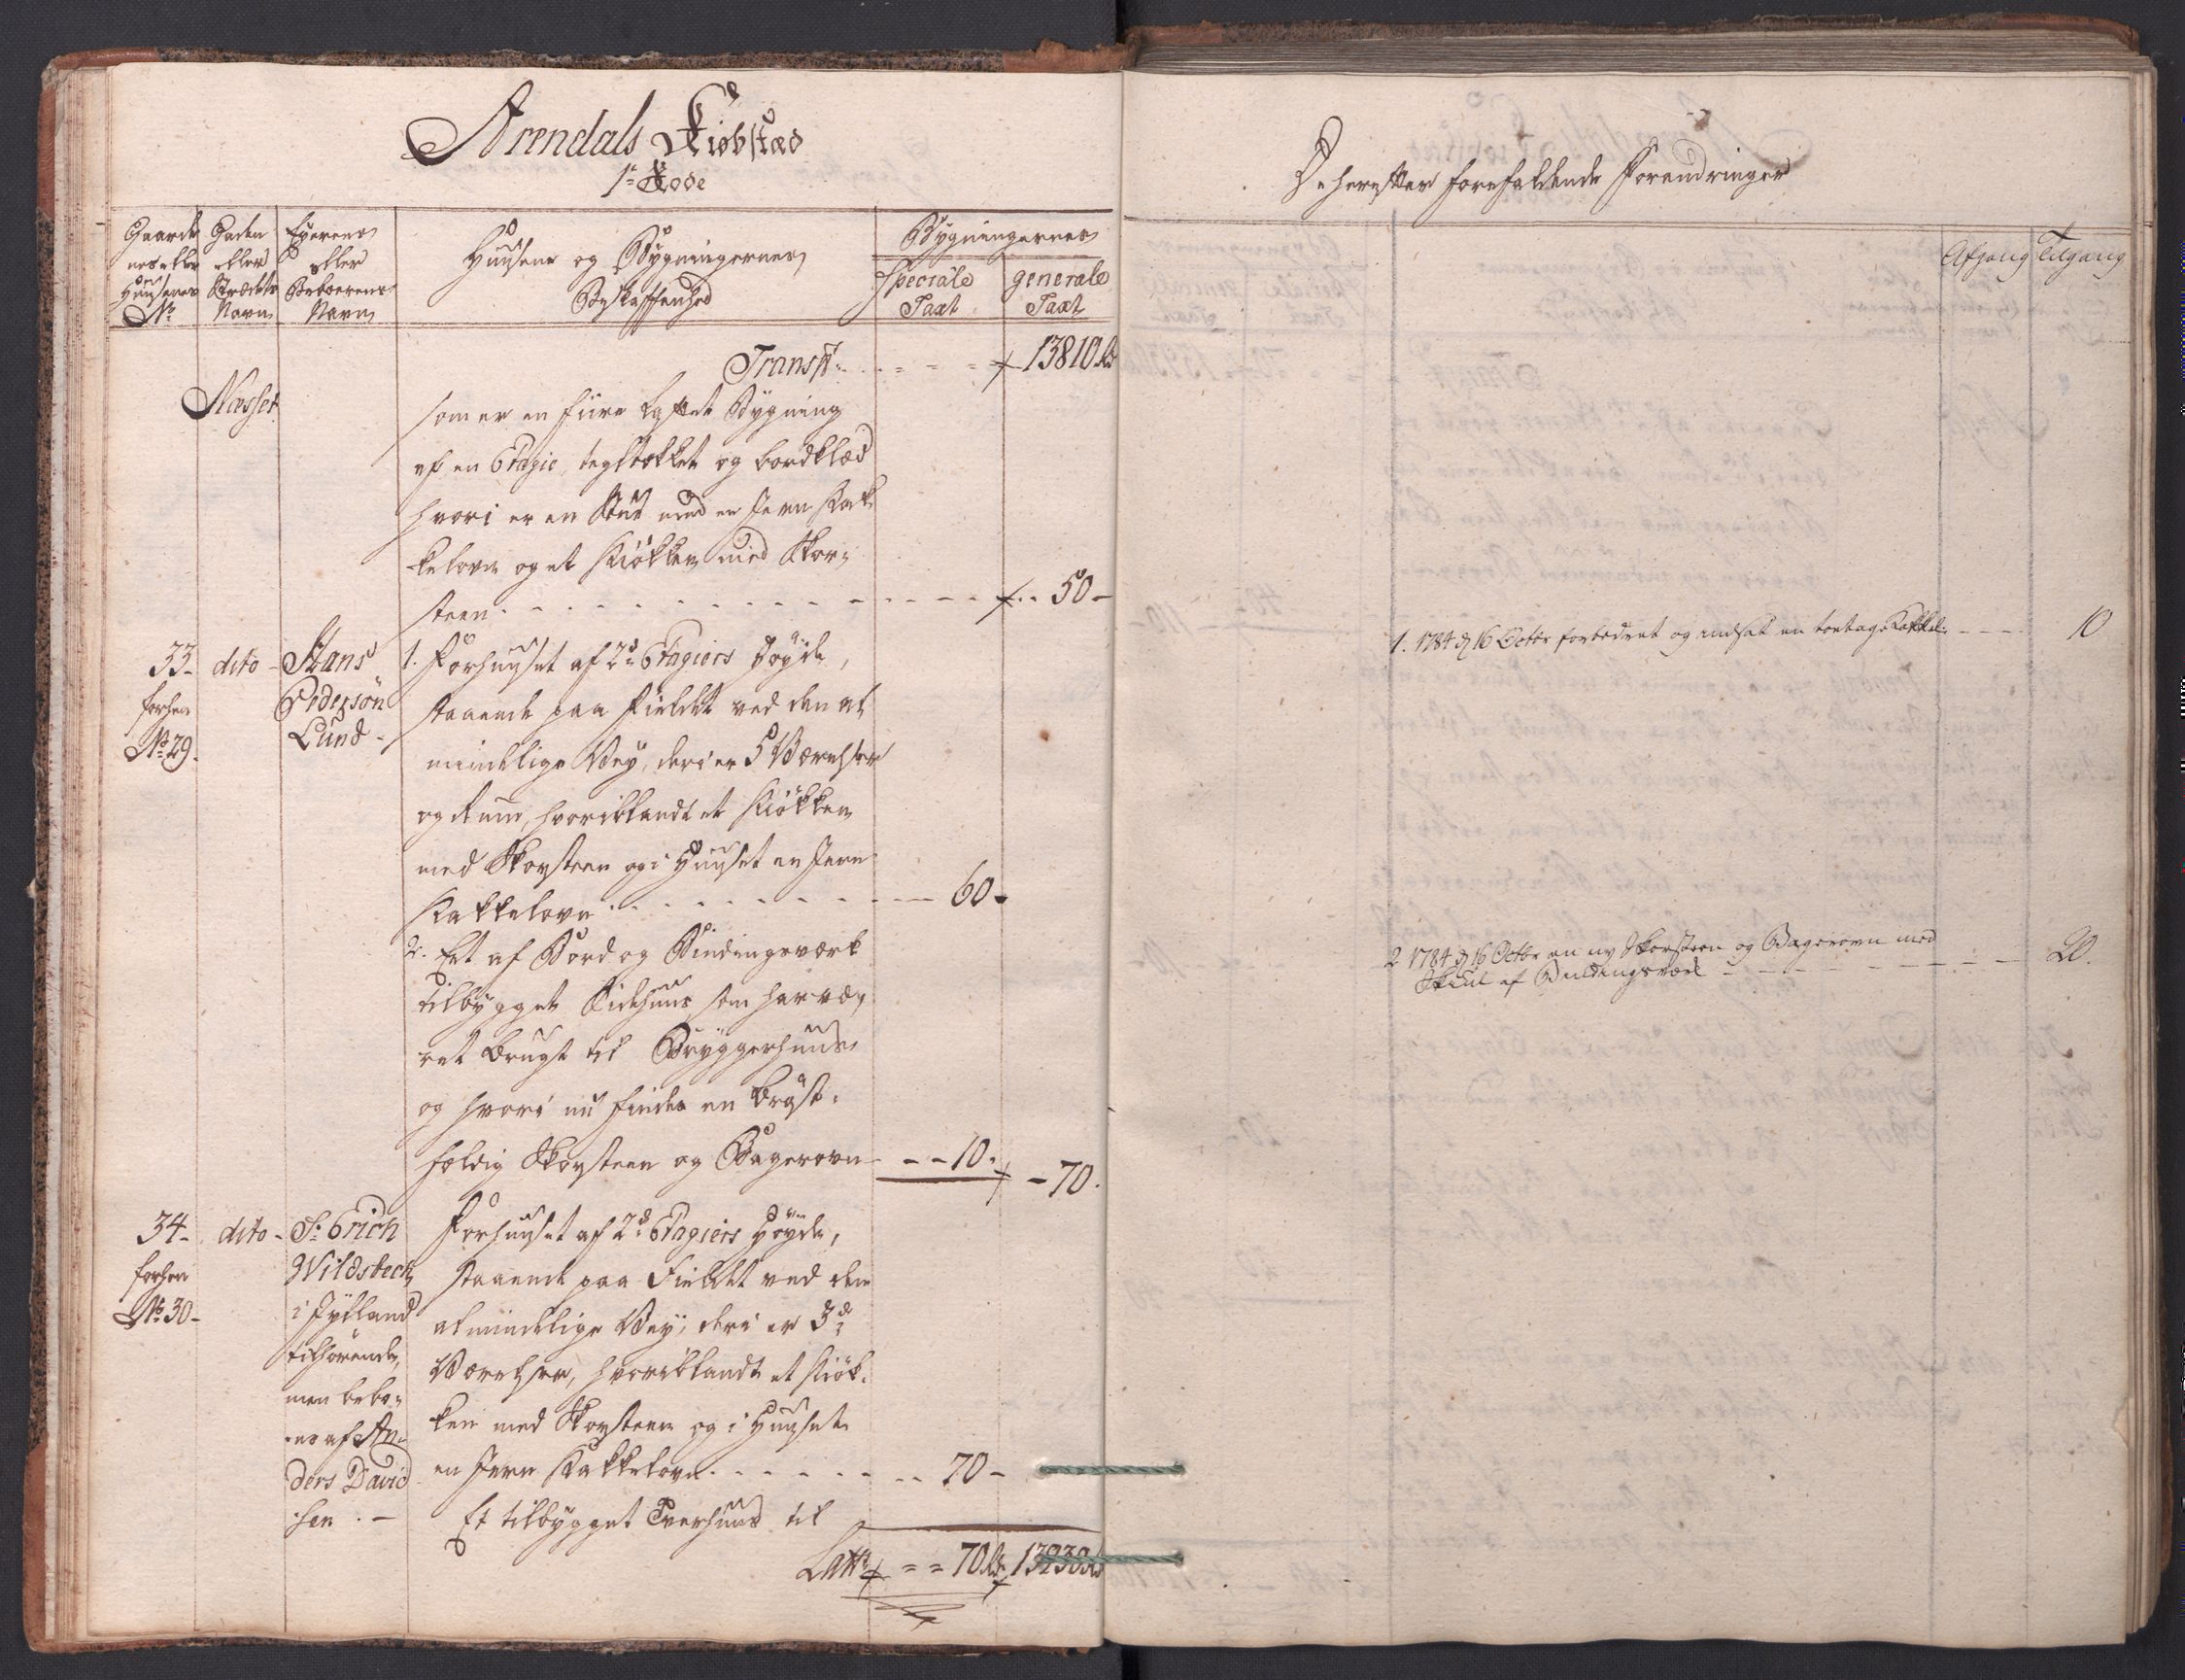 Arendals Kiøbstæd
1ste Rode
Gaarde
nes eller
Huusenes
No
Gaden
eller
Strædets
Navn
Eyerens
eller
Beboerens
Navn
Huusene og Bygningernes
Beskaffenhed
Bygningernes
speciale
Taxt
generale
Taxt
Transpt 13810 Rd
Næsset
som er en fiire Løftet Bygning
af en Etagie, teglt​ækket og bordklæd
hvori er en Stue med en Jern Kak-
kelovn og et Kiøkken med Skor-
steen - 50 -
33 -
forhen
No 29.
dito -
Hans
Pedersøn
Lund -
1. Forhuuset af 2de Etagiers Høyde,
staaende paa Fieldet ved den al
mindelige Vey, deri er 5 Værelser
og Rum, hvoriblandt et Kiøkken
med Skorsteen og i Huuset en Jern
Kakkelovn - 60 -
2. Et af Bord og Bindingsværk
tilbygget Sidehuus som har væ-
ret brugt til Bryggerhuus
og hvori nu findes en brøst-
fældig Skorsteen og Bagerovn - - 10. - 70.
34 -
forhen
No 30 -
dito -
Sr Erich
Wildsbech
i Jylland
tilhørende,
men bebo-
es af An-
ders David
sen. -
Forhuuset af 2de Etagiers Høyde,
staaende paa Fieldet ved den
almindelige Vey, deri er 3de
Værelser, hvoriblandt et Kiøk-
ken med Skorsteen og i Huuset
en Jern Kakkelovn - 70 -
Et tilbygget Tverhuus til
Latt. 70 Rd 13930 Rd
De herefter forefaldende Forandringer
Afgang Tilgang
1. 1784 d 16 Octbr forbedret og indsat en toetages Kakkel. - 10
2 1784 d 16 Octbr en ny Skorsteen og Bagerovn med
Skuur af Bindingsværk - 20.